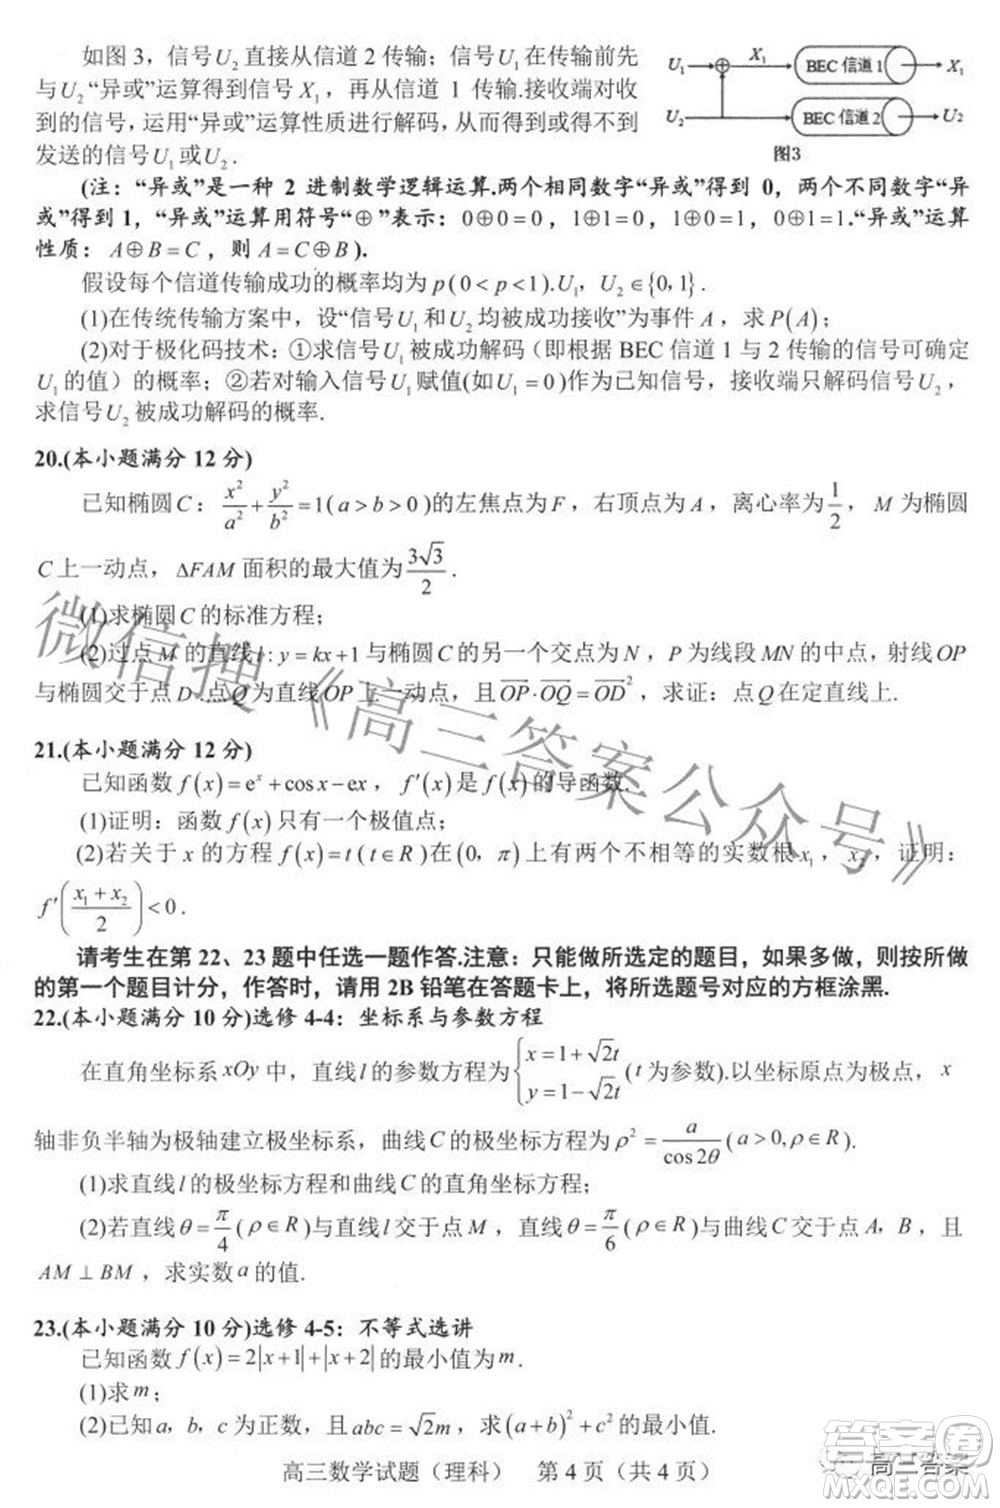 如图 3，信号 U₂ 直接从信道 2 传输；信号 U₁ 在传输前先
与 U₂ “异或”运算得到信号 X₁，再从信道 1 传输.接收端对收
到的信号，运用“异或”运算性质进行解码，从而得到得到
发送的信号 U₁ 或 U₂ .
U₁ ⊕ X₁ BEC 信道 1 X₁
U₂ BEC 信道 2 U₂
图3
(注：“异或”是一种 2 进制数学逻辑运算.两个相同数字“异或”得到 0，两个不同数字“异
或”得到 1，“异或”运算用符号“⊕”表示：0⊕0=0，1⊕1=0，1⊕0=1，0⊕1=1.“异或”运算
性质：A⊕B=C，则 A=C⊕B ).
假设每个信道传输成功的概率均为 p(0<p<1).U₁，U₂∈{0,1} .
(1)在传统传输方案中，设“信号 U₁ 和 U₂ 均被成功接收”为事件 A，求 P(A)；
(2)对于极化码技术：①求信号 U₁ 被成功解码（即根据 BEC 信道 1 与 2 传输的信号可确定
U₁ 的值）的概率；②若对输入信号 U₁ 赋值(如 U₁=0)作为已知信号，接收端只解码信号 U₂，
求信号 U₂ 被成功解码的概率.
20.(本小题满分 12 分)
已知椭圆 C：x²/a²+y²/b²=1(a>b>0)的左焦点为 F，右顶点为 A，离心率为 1/2，M 为椭圆
C 上一动点，ΔFAM 面积的最大值为 3√3/2 .
(1)求椭圆 C 的标准方程；
(2)过点 M 的直线 l:y=kx+1 与椭圆 C 的另一个交点为 N，P 为线段 MN 的中点，射线 OP
与椭圆交于点 D .点 Q 为直线 OP 上一动点，且 OP·OQ=OD²，求证：点 Q 在定直线上.
21.(本小题满分 12 分)
已知函数 f(x)=eˣ+cosx−ex，f′(x) 是 f(x) 的导函数.
(1)证明：函数 f(x) 只有一个极值点；
(2)若关于 x 的方程 f(x)=t(t∈R)在(0，π)上有两个不相等的实数根 x₁，x₂，证明：
f′((x₁+x₂)/2)<0 .
请考生在第 22、23 题中任选一题作答.注意：只能做所选定的题目，如果多做，则按所做
的第一个题目计分，作答时，请用 2B 铅笔在答题卡上，将所选题号对应的方框涂黑.
22.(本小题满分 10 分)选修 4-4：坐标系与参数方程
在直角坐标系 xOy 中，直线 l 的参数方程为{x=1+√2t, y=1−√2t (t 为参数).以坐标原点为极点，x
轴非负半轴为极轴建立极坐标系，曲线 C 的极坐标方程为 ρ²=a/cos2θ (a>0,ρ∈R).
(1)求直线 l 的极坐标方程和曲线 C 的直角坐标方程；
(2)若直线 θ=π/4(ρ∈R)与直线 l 交于点 M，直线 θ=π/6(ρ∈R)与曲线 C 交于点 A，B，且
AM⊥BM，求实数 a 的值.
23.(本小题满分 10 分)选修 4-5：不等式选讲
已知函数 f(x)=2|x+1|+|x+2| 的最小值为 m .
(1)求 m；
(2)已知 a，b，c 为正数，且 abc=√2m，求 (a+b)²+c² 的最小值.
高三数学试题（理科） 第 4 页（共 4 页）
微信搜《高三答案公众号》
答案圈
高三答案